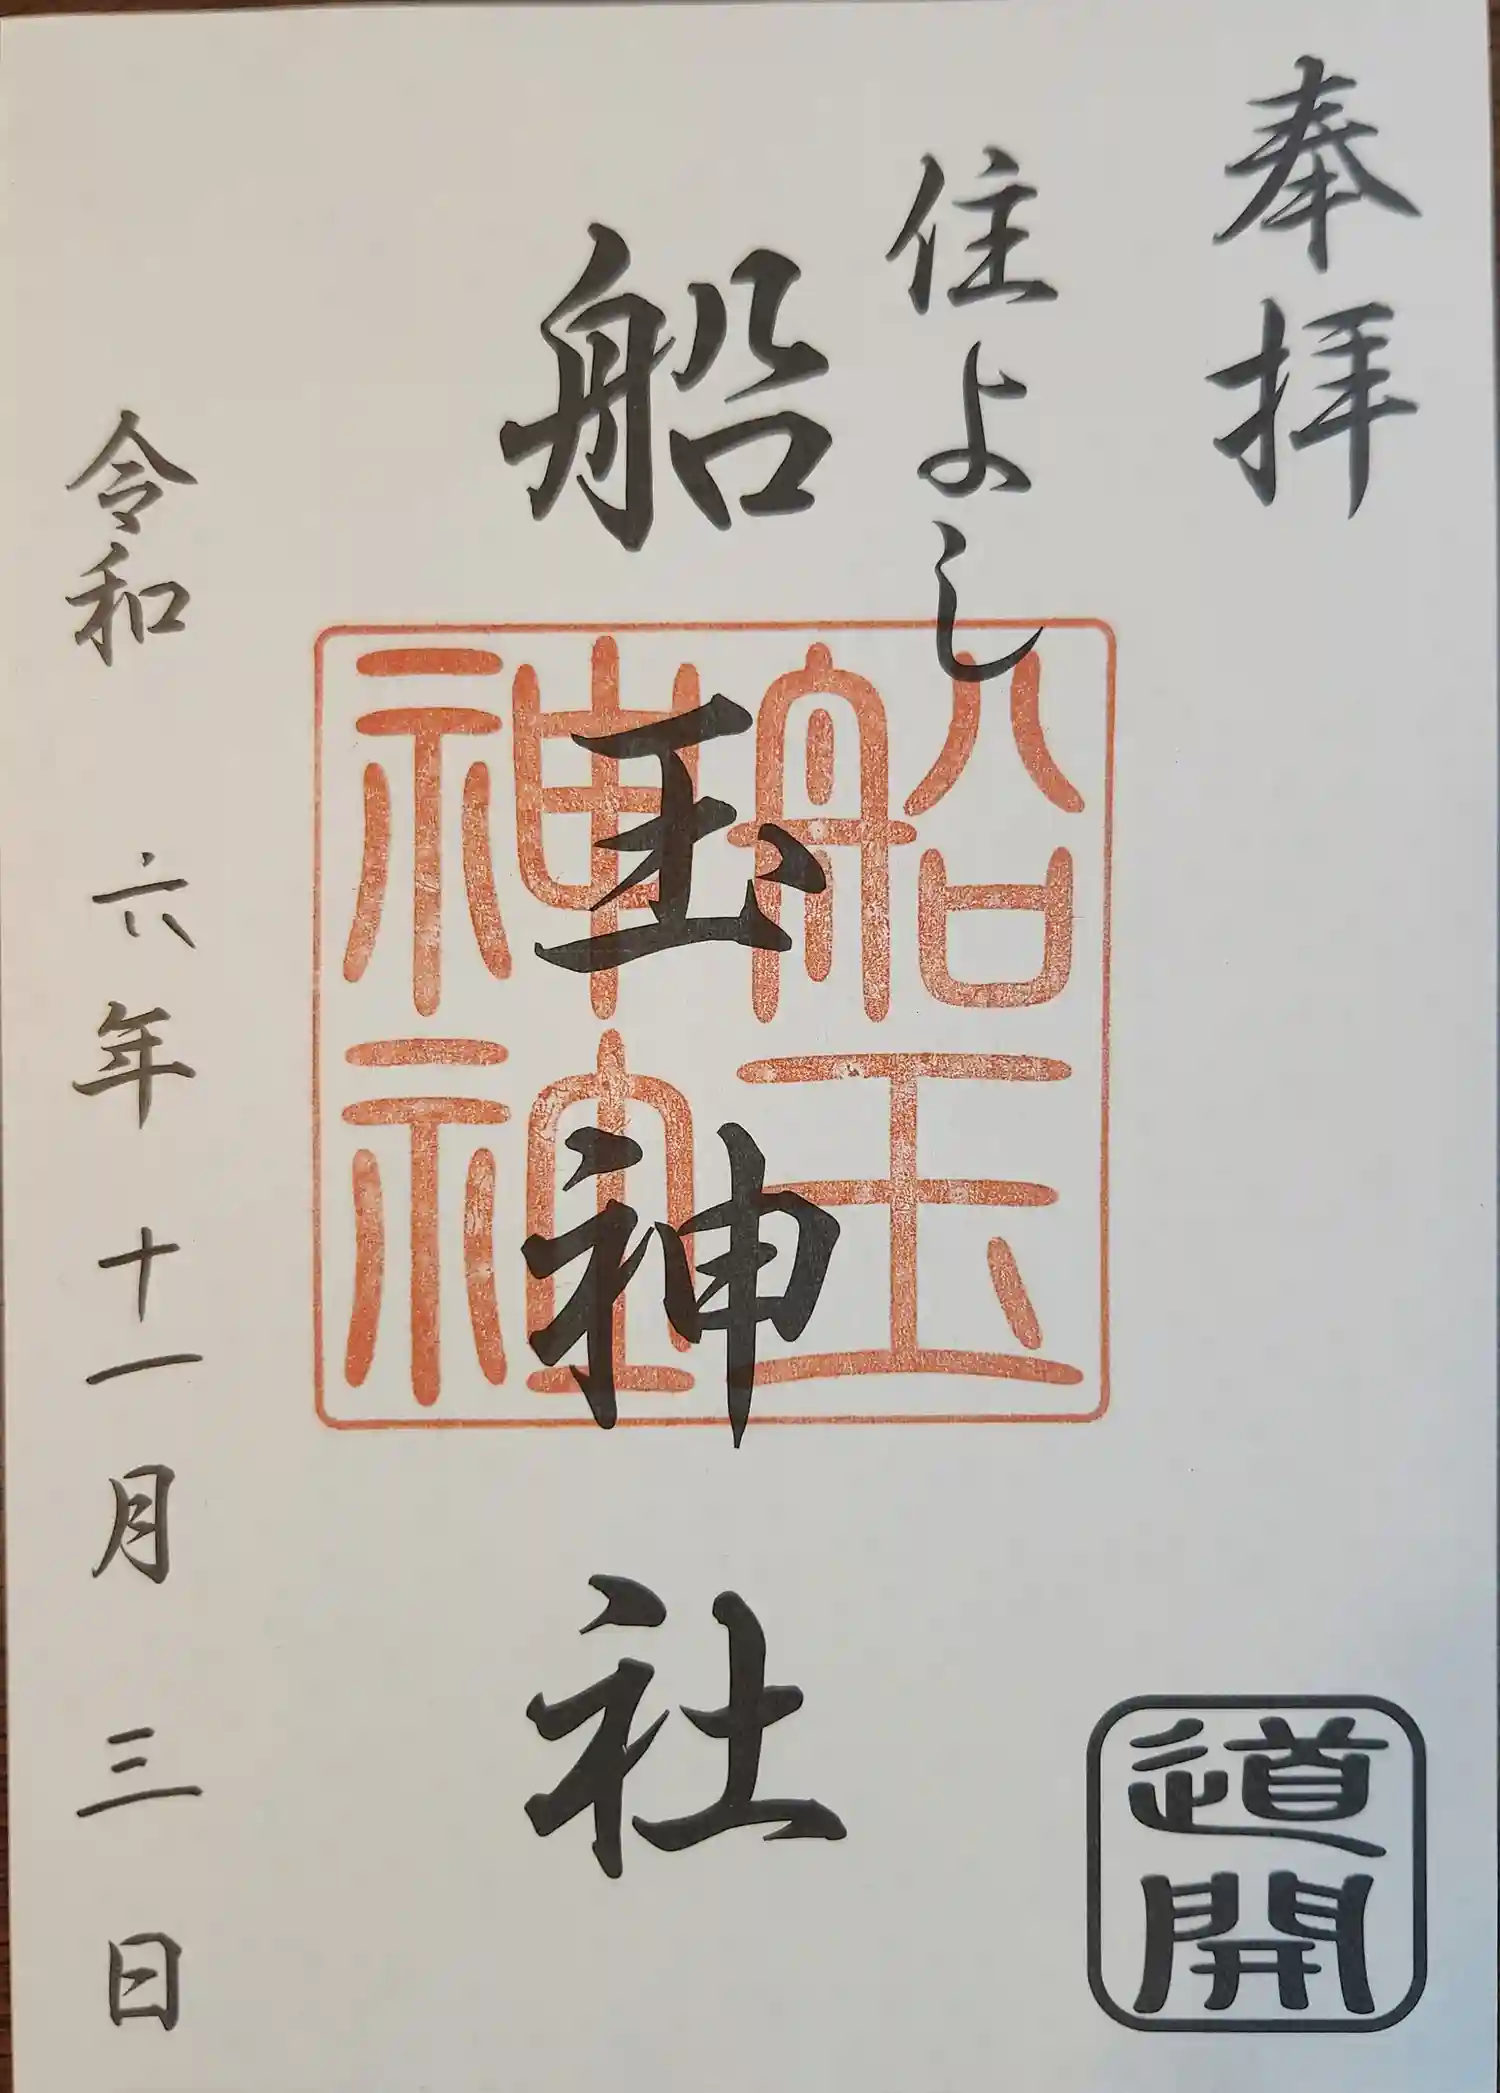 奉拝
住よし
船玉神社
船玉
神社
令和 六年十一月三日
道開